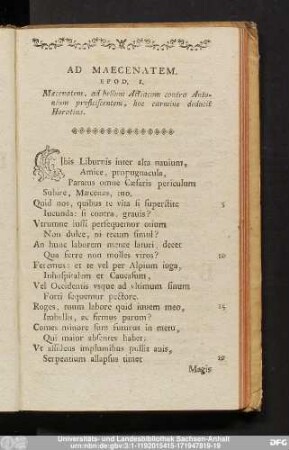 AD MAECENATEM.
EPOD. I.
Maecenatem, ad bellum Actiacum contra Anto-
nium proficiscentem, hoc carmine deducit
Horatius.
IBis Liburnis inter alta nauium,
Amice, propugnacula,
Paratus omne Caesaris periculum
Subire, Maecenas, tuo.
Quid nos, quibus te vita si superstite 5
Iucunda: si contra, grauis?
Vtrumne iussi persequemur otium
Non dulce, ni tecum simul?
An hunc laborem mente laturi, decet
Qua ferre non molles viros? 10
Feremus: et te vel per Alpium iuga,
Inhospitalem et Caucasum,
Vel Occidentis vsque ad vltimum sinum
Forti sequemur pectore.
Roges, tuum labore quid iuuem meo, 15
Imbellis, ac firmus parum?
Comes minore sum futurus in metu,
Qui maior absentes habet:
Vt assidens implumibus pullis auis,
Serpentium allapsus timet 20
Magis
Universitäts- und Landesbibliothek Sachsen-Anhalt
urn:nbn:de:gbv:3:1-1192015415-171947819-19
DFG